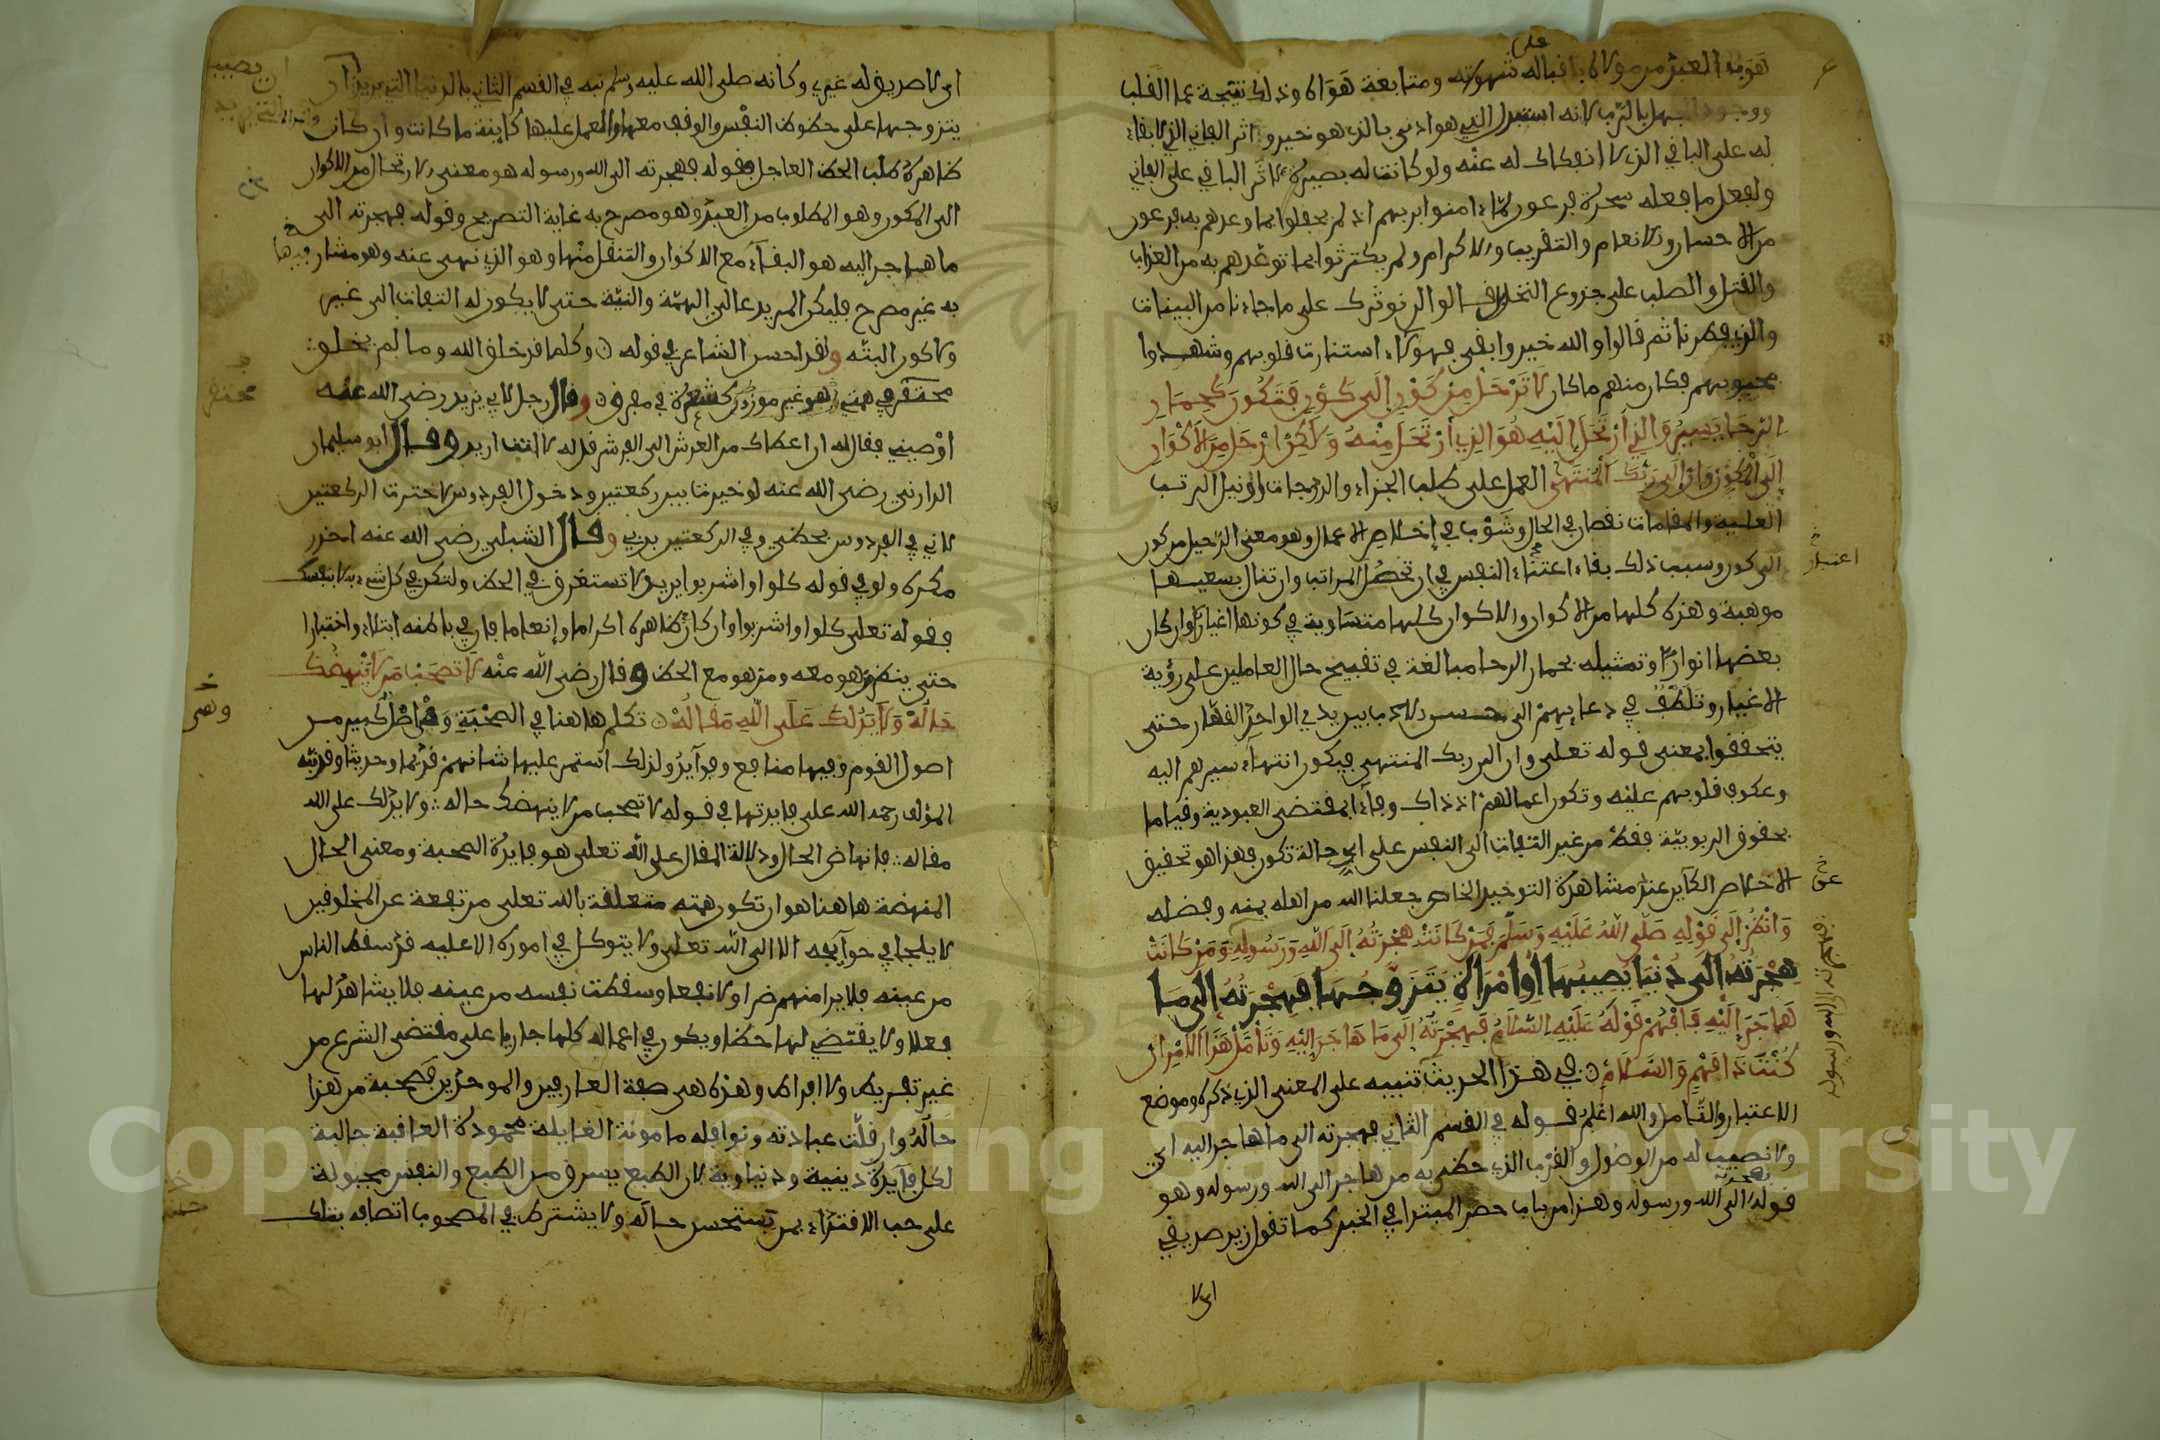 هروب العبد من مولاه باقباله على شهوته ومتابعة هواه وذلك نتيجة عما القلب
ووجود الجهل بالرب لانه استبدل الذي هو ادنى بالذي هو خير وءاثر الفاني الذي لا بقاء
له على الباقي الذي لا انفكاك له عنه ولو كانت له بصيرة لاثر الباقي على الفاني
ولفعل ما فعله سحرة فرعون لما ءامنوا بربهم اذ لم يحفلوا بما وعدهم به فرعون
من الاحسان والانعام والتقريب والاكرام ولم يكترثوا بما توعدهم به من العذاب
والقتل والصلب على جذوع النخل قالوا لن نوثرك على ما جاءنا من البينات
والذي فطرنا ثم قالوا والله خير وابقى فهولاء استنارت قلوبهم وشهدوا
محبوبهم فكان منهم ما كان لَا تَرْحَلْ مِنْ كَوْنٍ إِلَى كَوْنٍ فَتَكُونَ كَحِمَارِ
الرَّحَا يَسِيرُ وَالذِي ارْتَحَلَ إِلَيْهِ هُوَ الذِي ارْتَحَلَ مِنْهُ وَلَكِنْ ارْحَلْ مِنَ الأَكْوَانِ
إِلَى الْمُكَوِّنِ وَانَّ إِلَى رَبِّكَ الْمُنْتَهَى العمل على طلب الجزاء والدرجات او نيل الرتب
العلية والمقامات نقصان في الحال وشوب في إخلاص الاعمال وهو معنى الرحيل من كون
الى كون وسبب ذلك بقاء اعتناء النفس في ان تحصل المراتب وان تنال بسعيها
اعتبار
موهبة وهذه كلها من الاكوان والاكوان كلها متساوية في كونها اغيارا وان كان
بعضها انوارا وتمثيله بحمار الرحا مبالغة في تقبيح حال العاملين على رؤية
الاغيار وتلطف في دعايهم الى حسن الادب بين يدي الواحد القهار حتى
يتحققوا بمعنى قوله تعلى وان الى ربك المنتهى فيكون انتهاء سيرهم اليه
وعكوف قلوبهم عليه وتكون اعمالهم اذ ذاك وفاء بمقتضى العبودية وقياما
بحقوق الربوبية فقط من غير التفات الى النفس على اي حالة تكون فهذا هو تحقيق
الاخلاص الكاين عند مشاهدة التوحيد الخاص جعلنا الله من اهله بمنه وفضله
عن
وَانْظُرْ إِلَى قَوْلِهِ صَلَّى اللَّهُ عَلَيْهِ وَسَلَّمَ فَمَنْ كَانَتْ هِجْرَتُهُ إِلَى اللَّهِ وَرَسُولِهِ وَمَنْ كَانَتْ
فهجرته الى الله ورسوله
هِجْرَتُهُ إِلَى دُنْيَا يُصِيبُهَا أَوِ امْرَأَةٍ يَتَزَوَّجُهَا فَهِجْرَتُهُ إِلَى مَا
هَاجَرَ إِلَيْهِ فَافْهَمْ قَوْلَهُ عَلَيْهِ السَّلَامُ فَهِجْرَتُهُ إِلَى مَا هَاجَرَ إِلَيْهِ وَتَأَمَّلْ هَذَا الأَمْرَ إِنْ
كُنْتَ ذَا فَهْمٍ وَالسَّلَامُ في هذا الحديث تنبيه على المعنى الذي ذكره وموضع
الاعتبار والتامل والله اعلم قوله في القسم الثاني فهجرته الى ما هاجر اليه اي
ولا نصيب له من الوصول والقرب الذي حظي به من هاجر الى الله ورسوله وهو
قوله فهجرته الى الله ورسوله وهذا من باب حصر المبتدا في الخبر كما تقول زيد صديقي
اي لا
اي لا صديق له غيري وكانه صلى الله عليه وسلم نبه في القسم الثاني بالدنيا التي يريد ان
ان يصيبها
يتزوجها على حظوظ النفس والوقوف معها والعمل عليها كاينة ما كانت وان كان
ظاهره طلب الحظ العاجل فقوله فهجرته الى الله ورسوله هو معنى الارتحال من الاكوان
الى المكون وهو المطلوب من العبد وهو مصرح به غاية التصريح وقوله فهجرته الى
ما هاجر اليه هو البقاء مع الاكوان والتنقل منها وهو الذي نهى عنه وهو مشار
فيها
به غير مصرح فليكن المريد عالي الهمة والنية حتى لا يكون له التفات الى غير
ولا كون البتة ولقد احسن الشاعر في قوله وكلما قد خلق الله وما لم يخلق
محتقر في همتي كشعرة في مفرق وقال رجل لابي يزيد رضي الله عنه
محتقر
اوصيني فقال له ان اعطاك من العرش الى الفرش فقل له لا انت اريد وقال ابو سليمان
الداراني رضي الله عنه لو خيرت بين ركعتين ودخول الفردوس لاخترت الركعتين
لاني في الفردوس بحظي وفي الركعتين بربي وقال الشبلي رضي الله عنه احذر
مكره ولو في قوله كلوا واشربوا يريد لا تستغرق في الحظ ولتكن في كل شيء به لا بنفسك
فقوله تعلى كلوا واشربوا وان كان ظاهره اكراما وإنعاما فان في باطنه ابتلاء واختبارا
حتى ينظر من هو معه ومن هو مع الحظ وقال رضي الله عنه لَا تَصْحَبْ مَنْ لَا يُنْهِضُكَ
حَالُهُ وَلَا يَدُلُّكَ عَلَى اللَّهِ مَقَالُهُ تكلم هاهنا في الصحبة وهي اصل كبير من
وهي
اصول القوم وفيها منافع وفوايد ولذلك استمر عليها شانهم قديما وحديثا وقد نبه
المؤلف رحمه الله على فايدتها في قوله لا تصحب من لا ينهضك حاله ولا يدلك على الله
مقاله فانهاض الحال ودلالة المقال على الله تعلى هو فايدة الصحبة ومعنى الحال
المنهضة هاهنا هو ان تكون همته متعلقة بالله تعلى مرتفعة عن المخلوقين
لا يلجا في حوايجه الا الى الله تعلى ولا يتوكل في اموره الا عليه قد سقط الناس
من عينه فلا يرا منهم ضرا ولا نفعا وسقطت نفسه من عينه فلا يشاهد لها
فعلا ولا يقتضي لها حظا ويكون في اعماله كلها جاريا على مقتضى الشرع من
غير تفريط ولا افراط وهذه هي صفة العارفين والموحدين فصحبة من هذا
حاله وان قلت عبادته ونوافله مامونة الغايلة محمودة العاقبة جالبة
لكل فايدة دينية ودنياوية لان الطبع يسرق من الطبع والنفس مجبولة
على حب الاقتداء بمن تستحسن حاله ولا يشترط في المصحوب اتصافه بتلك